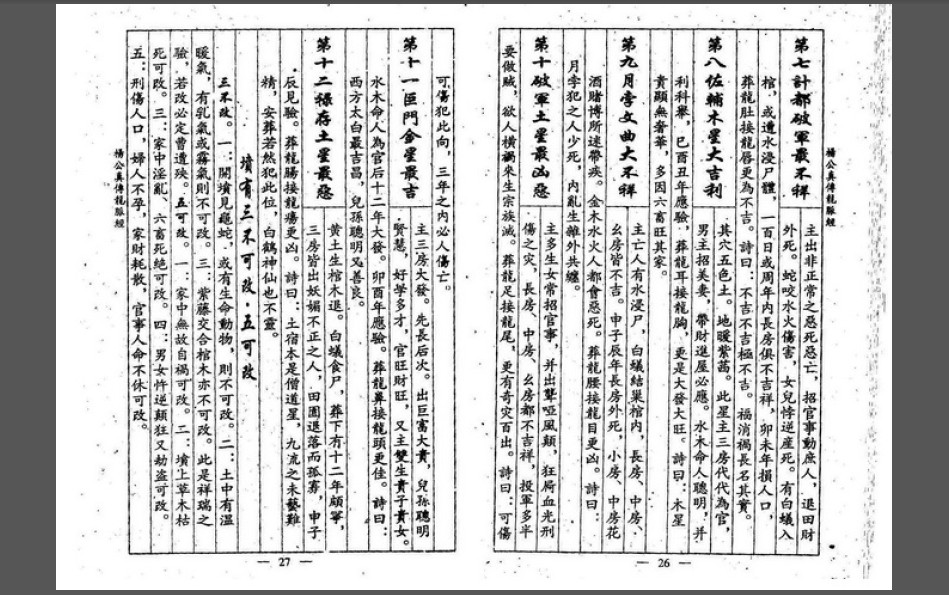 楊公真傳龍脈經
第七計都破軍最不祥
主出非正常之惡死惡亡，招官事動庶人，退田財
外死。蛇咬水火傷害，女兒悖逆產死。有白蟻入
棺，或遭水浸尸體，一百日或周年內長房俱不吉祥，卯未年損人口，
葬龍肚接龍唇更為不吉。詩曰：不吉不吉極不吉。福消禍長名其實。
第八佐輔木星大吉利
其穴五色土。地暖紫藹。此星主三房代代為官，
男主招美妻，帶財進屋必應。水木命人聰明，并
利科舉，巳酉丑年應驗，葬龍耳接龍胸，更是大發大旺。詩曰：木星
貴顯無奢華，多因六畜旺其家。
第九月孛文曲大不祥
主亡人有水浸尸，白蟻結巢棺內，長房、中房、
幺房皆不吉。申子辰年長房外死，小房、中房花
酒賭博所述帶疾。金木水火人都會惡死。葬龍腰接龍目更凶。詩曰：
月孛犯之人少死，內亂生離外共纏。
第十破軍土星最凶惡
主多生女常招官事，并出聾啞風顛，狂屙血光刑
傷之灾，長房、中房、幺房都不吉祥，投軍多半
要做賊，欲人橫禍來生宗族滅。葬龍足接龍尾，更有奇灾百出。詩曰：可傷
— 26 —
可傷犯此向，三年之內必人傷亡。
第十一巨門金星最吉
主三房大發。先長后次。出巨富大貴，兒孫聰明
賢慧，好學多才，官旺財旺，又主雙生貴子貴女。
水木命人為官后十二年大發。卯酉年應驗。葬龍鼻接龍頭更佳。詩曰：
西方太白最吉昌，兒孫聰明又善良。
第十二祿存土星最惡
黃土生棺木退。白蟻食尸，葬下有十二年顧寧，
三房皆出妖媚不正之人，田園退落而孤寡，申子
辰見驗。葬龍腸接龍瘍更凶。詩曰：土宿本是僧道星，九流之未藝難
精，安葬若然犯此位，白鶴神仙也不靈。
墳有三不可改·五可改
三不改。一：開墳見龜蛇，或有生命動物，則不可改。二：土中有溫
暖氣，有乳氣或霧氣則不可改。三：紫藤交合棺木亦不可改。此是祥瑞之
驗，若改必定曾遭殃。五可改。一：家中無故自禍可改。二：墳上草木枯
死可改。三：家中淫亂、六畜死絕可改。四：男女忤逆顛狂又劫盜可改。
五：刑傷人口，婦人不孕，家財耗散，官事人命不休可改。
楊公真傳龍脈經
— 27 —